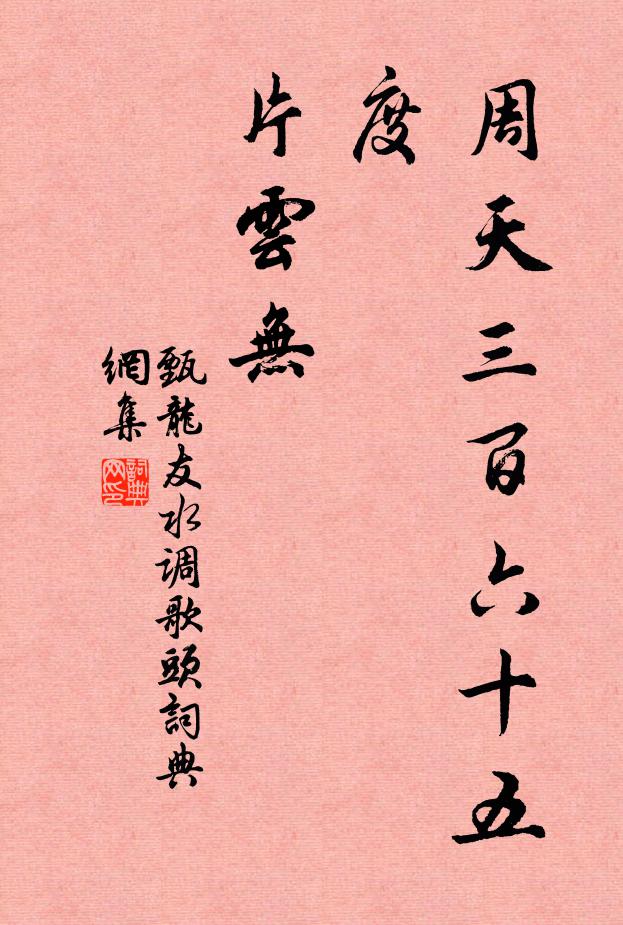 周天三百六十五
度
片雲無
甄龍友水调歌頭詞典
網集
詞典
网印